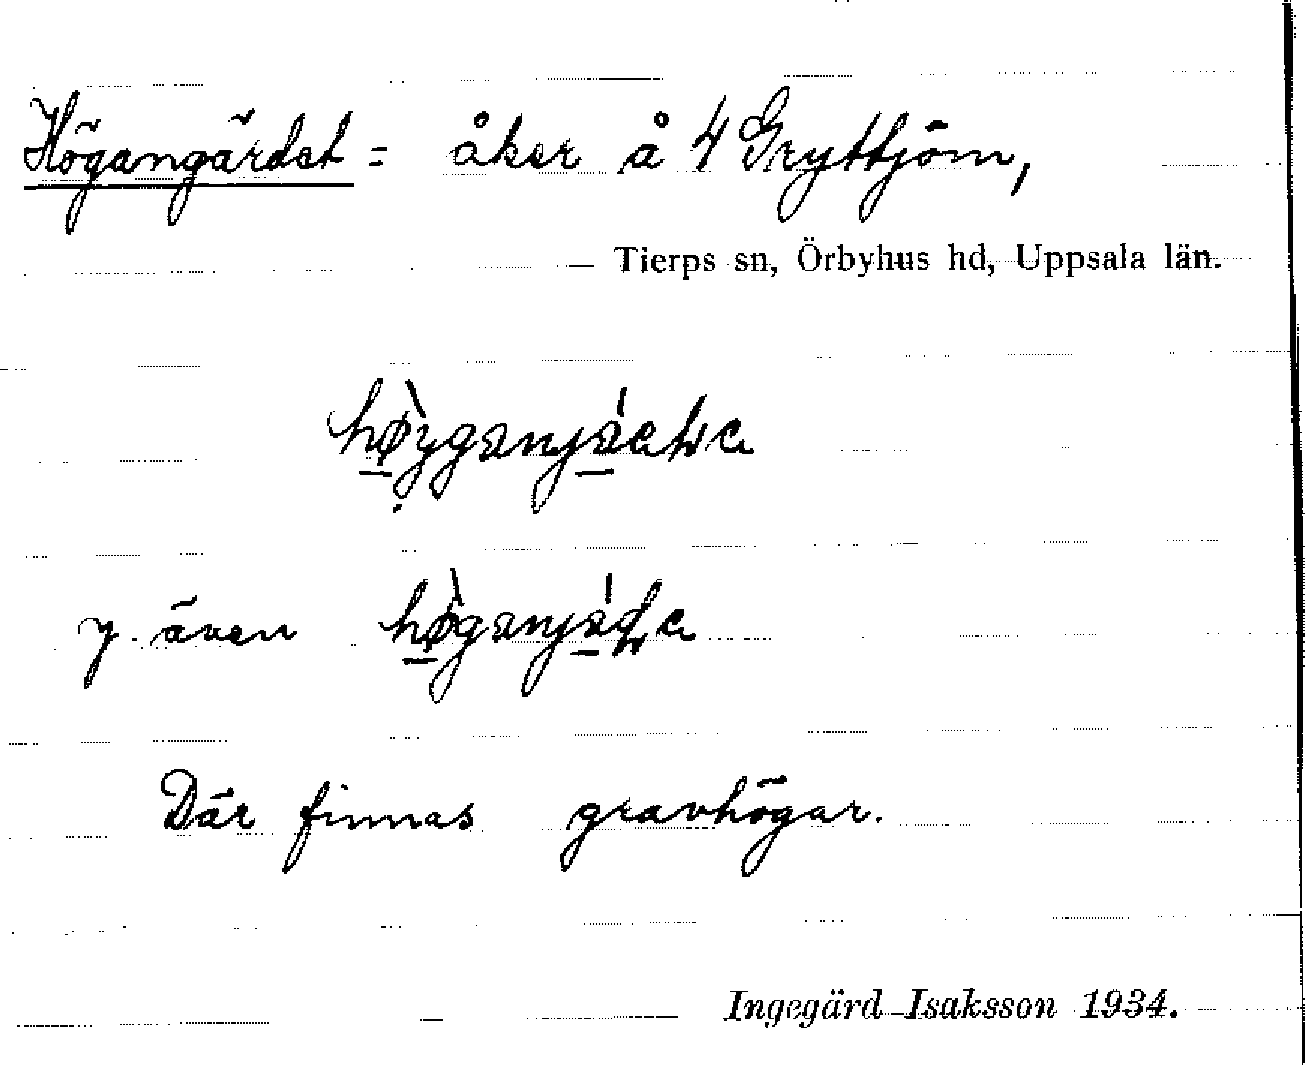 Högangärdet = åker å 4 Gryttjöm,
Tierps sn, Örbyhus hd, Uppsala län.
y. även
Där finnas gravhögar.
Ingegärd Isaksson 1934.